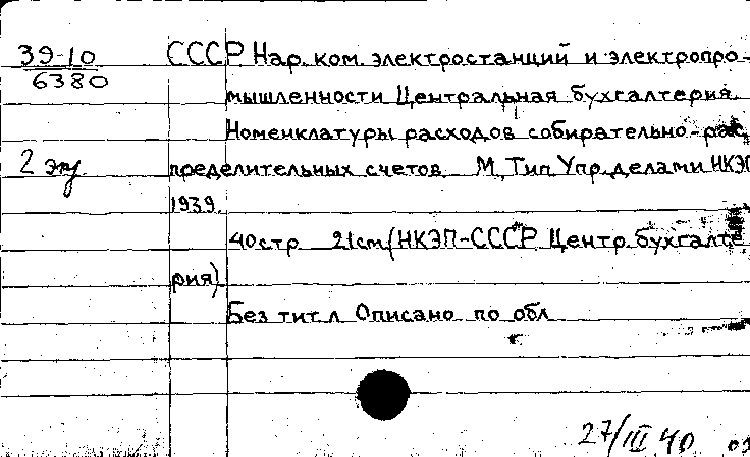 39-10
6380
2 экз
СССР. Нар. ком. электростанций и электропро-
мышленности. Центральная бухгалтерия.
Номенклатуры расходов собирательно-рас
пределительных счетов. М. Тип. Упр. делами НКЭП
1939.
40 стр. 21 см (НКЭП-СССР. Центр. бухгалте
рия)
Без тит. л. Описано по обл.
27/III 40